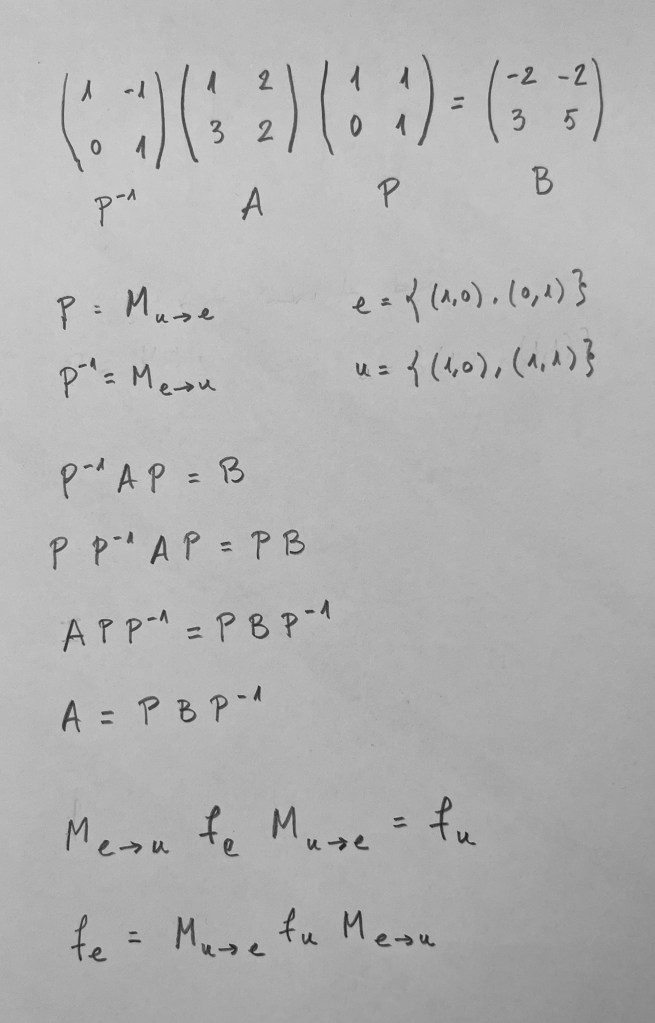 (1 -1; 0 1) (1 2; 3 2) (1 1; 0 1) = (-2 -2; 3 5)
P⁻¹ A P B
P = M_{u→e} e = {(1,0), (0,1)}
P⁻¹ = M_{e→u} u = {(1,0), (1,1)}
P⁻¹ A P = B
P P⁻¹ A P = P B
A P P⁻¹ = P B P⁻¹
A = P B P⁻¹
M_{e→u} f_e M_{u→e} = f_u
f_e = M_{u→e} f_u M_{e→u}